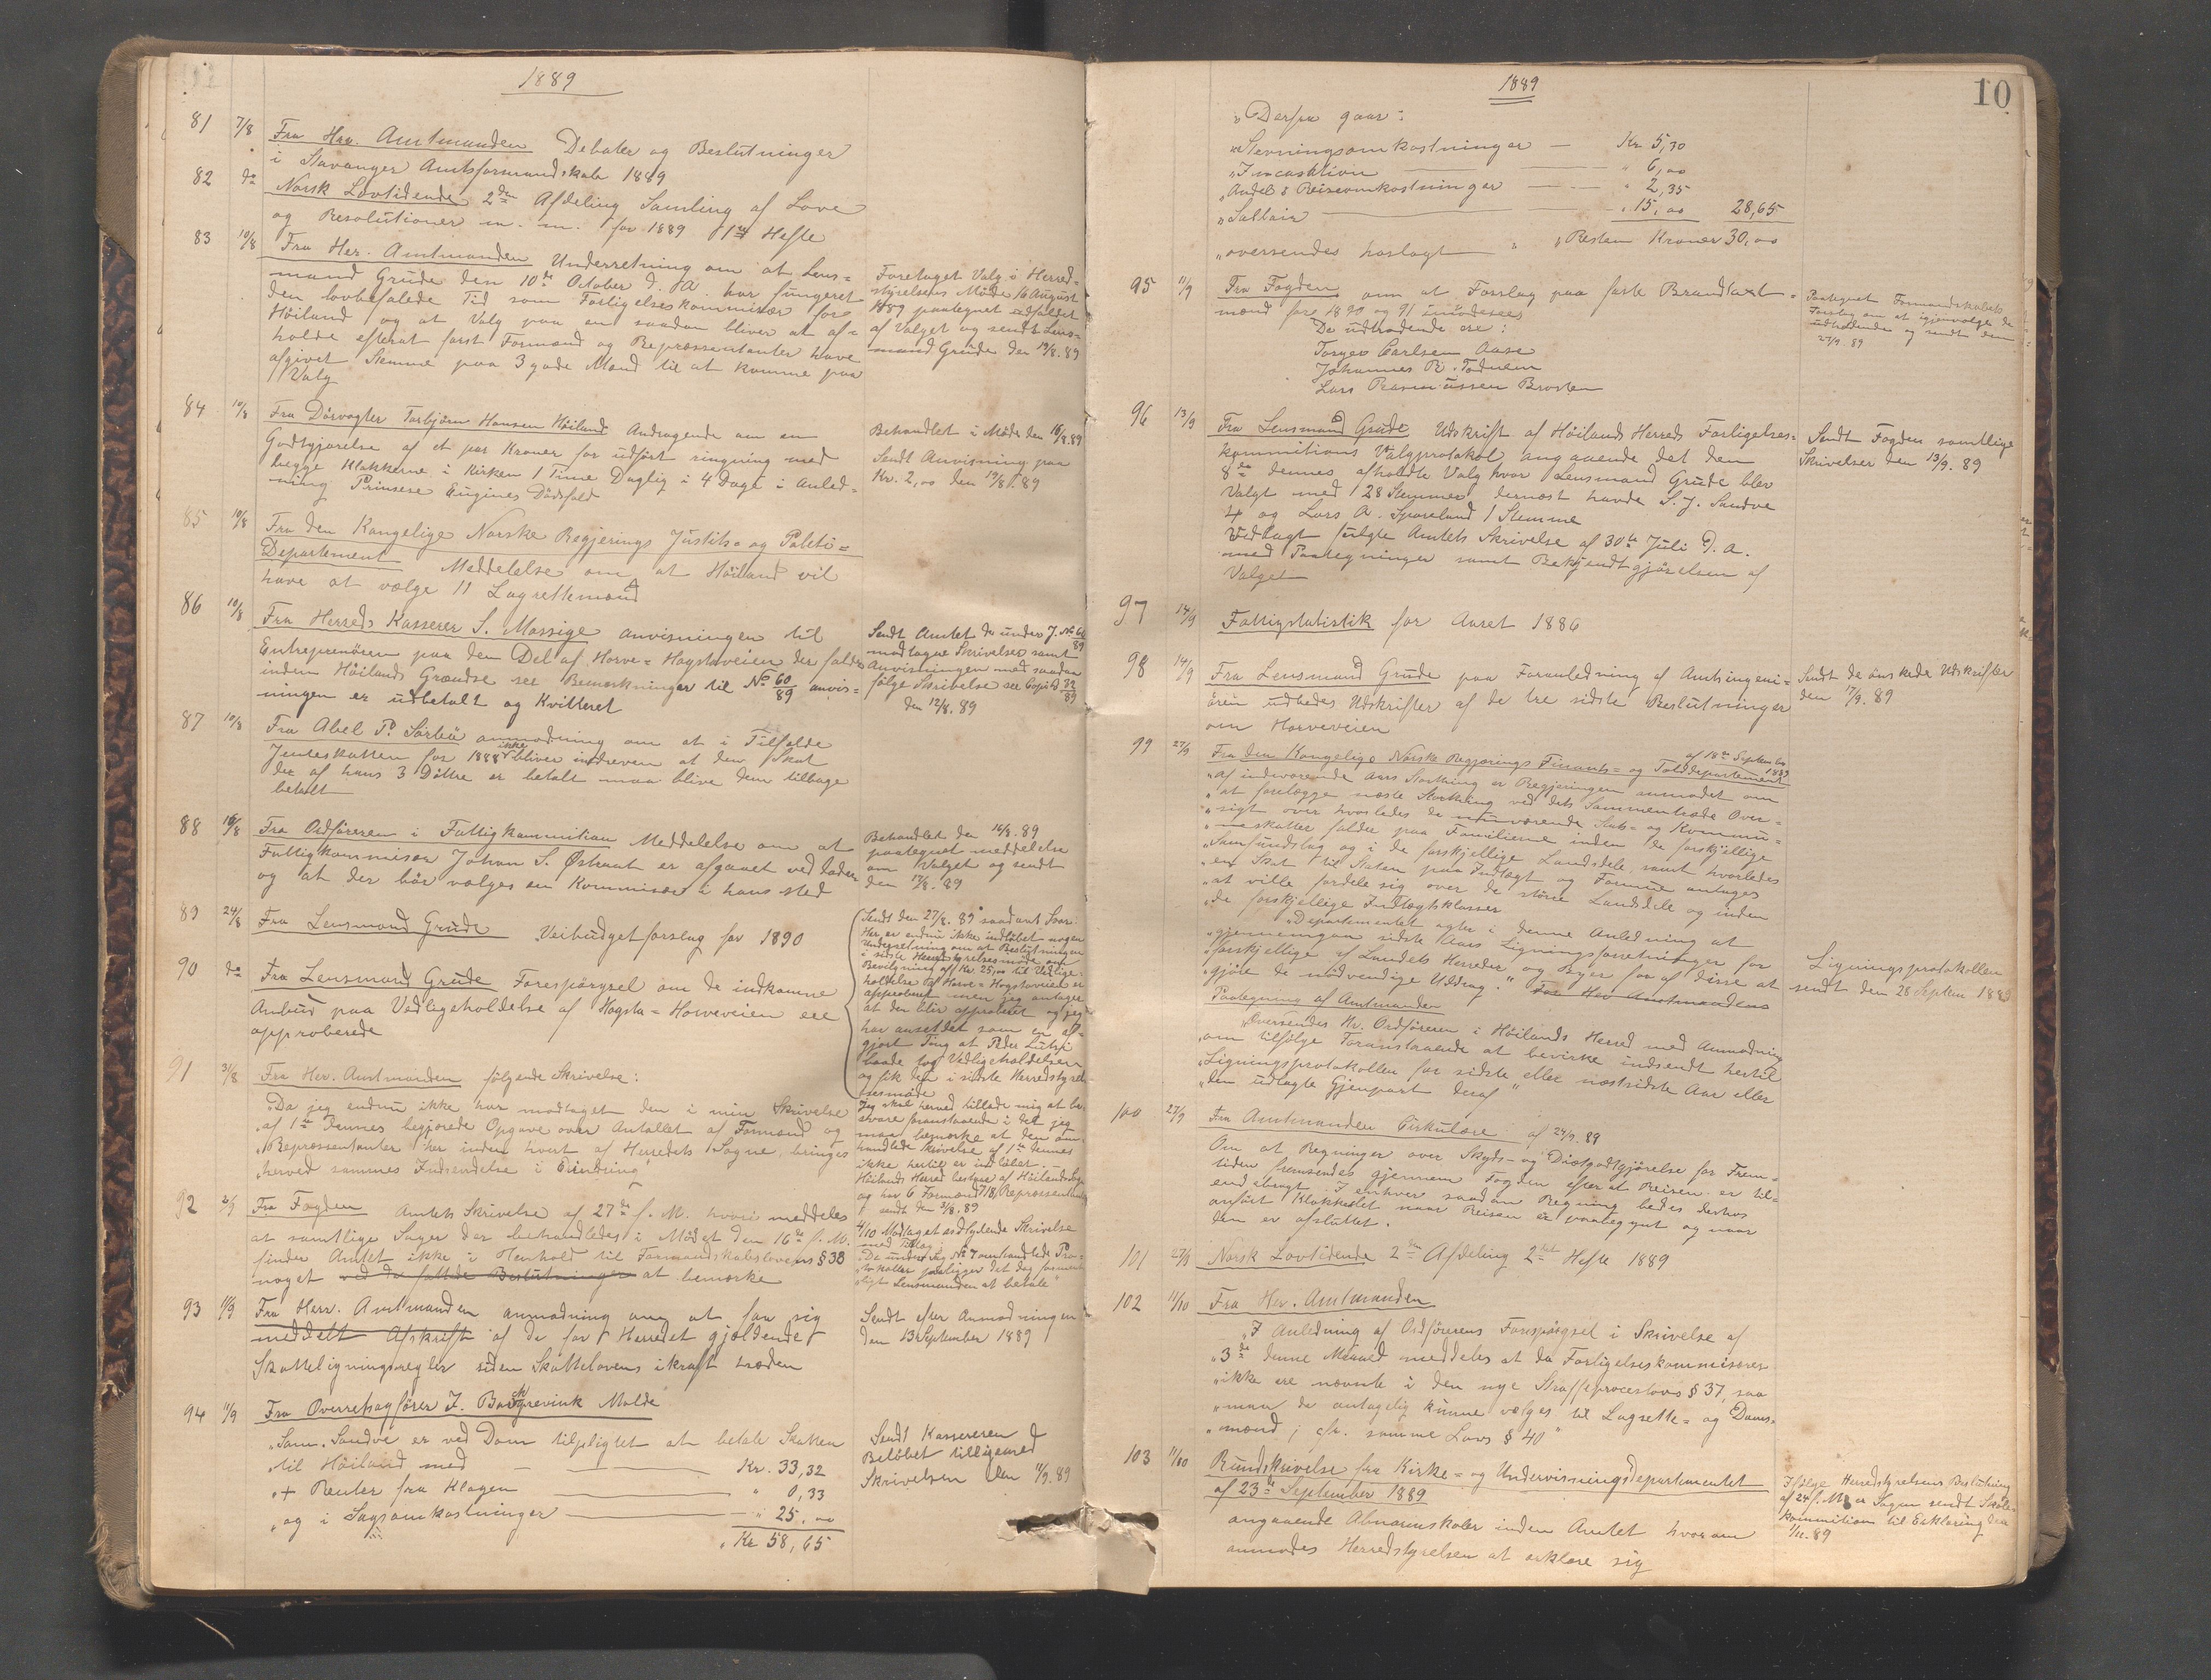 1889
81 7/8 Fra Herr. Amtmanden Debater og Beslutninger
i Stavanger Amtsformandskab 1889
82 do Norsk Lovtidende 2den Afdeling Samling af Love
og Resolutioner m. m. for 1889 1ste Hefte
83 10/8 Fra Her. Amtmanden Underretning om at Lens=
mand Grude den 10de October d. A. har fungeret
den lovbefalede Tid som Forligelseskommissær for
Höiland og at Valg paa en saadan bliver at af=
holde efterat först Formænd og Repræsentanter have
afgivet Stemme paa 3 gode Mænd til at komme paa
Valg
Foretaget Valg i Herred=
styrelsens Möde 16 August
1889 paategnet udfaldet
af Valget og sendt Lens=
mand Grude den 19/8. 89
84 10/8 Fra Dörvogter Torbjörn Hansen Höiland Andragende om en
Godtgjörelse af et par Kroner for udfört ringning med
begge Klokkerne i Kirken 1 Time Daglig i 4 Dage i Anled=
ning Prinsesse Eugines Dödsfald
Behandlet i Möde den 16/8. 89
Sendt Anvisning paa
Kr. 2,00 den 19/8. 89
85 10/8 Fra den Kongelige Norske Regjerings Justits= og Politi=
Departement Meddelelse om at Höiland vil
have at vælge 11 Lagrettemænd
86 10/8 Fra Herreds Kasserer S. Mossige anvisningen til
Entreprenören paa den Del af Horve=Hogstaveien der falder
inden Höilands Grændse see Bemærkninger til No 60/89 anvis=
ningen er udbetalt og Kvitteret
Sendt Amtet de under J. No 60/89
modtagne Skrivelser samt
Anvisningen med saadan
fölge Skrivelse see Copibd 32/89
den 12/8. 89
87 10/8 Fra Abel P. Sörbö anmodning om at i Tilfælde
Jenteskatten for 1888 ikke bliver inddreven at den Skat
der af hans 3 Döttre er betalt maa blive dem tilbage
betalt
88 16/8 Fra Ordföreren i Fattigkommission Meddelelse om at
Fattigkommisær Johan S. Østraat er afgaaet ved Döden
og at der bör vælges en Kommisær i hans sted
Behandlet den 16/8. 89
paategnet meddelelse
om Valget og sendt
den 17/8. 89
89 24/8 Fra Lensmand Grude Veibudgetforslag for 1890
90 do Fra Lensmand Grude Forespörgsel om de indkomne
Anbud paa Vedligeholdelse af Hogsta=Horveveien ere
approberede
Sendt den 27/8. 89 saadant Svar:
Her er endnu ikke indlöbet nogen
Underretning om at Beslutningen
i sidste Herredstyrelsesmöde om
Bevilgning af Kr. 25,00 til Vedlige=
holdelse af Horve=Hogstaveien er
approberet men jeg antager
at den bliver approberet og jeg
har anset det som en af=
gjort Ting at Peder Lutsi
baade tog Vedligeholdelsen
og fik den i sidste Herredstyrel=
sesmöde
91 31/8 Fra Her. Amtmanden fölgende Skrivelse:
"Da jeg endnu ikke har modtaget den i min Skrivelse
"af 1ste dennes begjærede Opgave over Antallet af Formænd og
"Repræsentanter her inden hvert af Herredets Sogne, bringes
"herved sammes Indsendelse i Erindring"
Jeg skal herved tillade mig at be=
svare foranstaaende i det jeg
maa bemærke at den om=
handlede Skrivelse af 1ste dennes
ikke hertil er indlöbet. —
Höilands Herred bestaar af Höilands Sogn
og har 6 Formænd & 18 Repræsentanter
sendt den 3/8. 89
92 2/9 Fra Fogden Amtets Skrivelse af 27de f. M. hvori meddeles
at samtlige Sager der behandledes i Mödet den 16de f. M.
finder Amtet ikke i Henhold til Formandskabslovens § 38
noget ved de fattede Beslutninger at bemærke
4/10 Modtaget sodlydende Skrivelse
med Tillæg
"Da under Jrg No 7 omhandlede Pro=
"tokoller paaligger det dog forment=
"ligt Lensmanden at betale"
93 11/9 Fra Herr. Amtmanden anmodning om at faa sig
meddelt Afskrift af de for Herredet gjældende
Skatteligningsregler siden Skattelovens ikraft træden
Sendt efter Anmodningen
den 13 September 1889
94 11/9 Fra Overretssagförer J. Backgrevink Molde
"Sam. Sandve er ved Dom tilpligtet at betale Skatten
"til Höiland med — Kr. 33,32
"+ Renter fra Klagen — " 0,33
"og i Sagsomkostninger — " 25,00
" Kr 58,65
Sendt Kassereren
Belöbet tilligemed
Skrivelsen den 11/9. 89
1889
10
"Derfra gaar:
"Stevningsomkostninger — Kr 5,30
"Incassation — " 6,00
"Andel i Reiseomkostninger — " 2,35
"Sallair — " 15,00 28,65
"oversendes hoslagt " "Resten Kroner 30,00
95 11/9 Fra Fogden om at Forslag paa faste Brandtaxt=
mænd for 1890 og 91 imödesees
De udtrædende ere:
Torger Carlsen Aase
Johannes R. Todnem
Lars Rasmussen Brosten
Paategnet Formandskabets
Forslag om at igjenvælge de
udtrædende og sendt den
27/9. 89
96 13/9 Fra Lensmand Grude Udskrift af Höilands Herreds Forligelses=
kommitions Valgprotokol angaaende det den
8de dennes afholdte Valg hvor Lensmand Grude blev
Valgt med 28 Stemmer dernæst havde S. J. Sandve
4 og Lars A. Sporeland 1 Stemme
Vedlagt fulgte Amtets Skrivelse af 30te Juli D. A.
med Paategninger samt Bekjendtgjörelsen af
Valget
Sendt Fogden samtlige
Skrivelser den 13/9. 89
97 14/9 Fattigstatistik for Aaret 1886
98 14/9 Fra Lensmand Grude paa Foranledning af Amtsingeni=
ören udbedes Udskrifter af de tre sidste Beslutninger
om Horveveien
Sendt de önskede Udskrifter
den 17/9. 89
99 27/9 Fra den Kongelige Norske Regjerings Finants= og Tolddepartement
af 18de Septem. 1889
"af indeværende Aars Storthing er Regjeringen anmodet om
"at forelægge næste Storthing ved dets Sammentræde Over=
"sigt over hvorledes de nuværende Stats= og Kommu=
"neskatter falder paa Familierne inden de forskjellige
"Samfundslag og i de forskjellige Landsdele, samt hvorledes
"en Skat til Staten paa Indtægt og Formue antages
"at ville fordele sig over de större Landsdele og inden
"de forskjellige Indtægtsklasser
"Departementet agter i denne Anledning at
"gjennemgaa sidste Aars Ligningsforretninger for
"forskjellige af Landets Herreder og Byer for af disse at
"gjöre de nödvendige Uddrag." Fra Her Amtmandens
Paategning af Amtmanden
"Oversendes Hr. Ordföreren i Höilands Herred med Anmodning
"om tilfölge Foranstaaende at bevirke indsendt hertil
"Ligningsprotokollen for sidste eller næstsidste Aar eller
"den udlagte Gjenpart deraf"
Ligningsprotokollen
sendt den 28 Septem 1889
100 27/9 Fra Amtmanden Cirkulære af 24/9. 89
Om at Regninger over Skyds- og Diætgodtgjörelse for Frem=
tiden fremsendes gjennem Fogden efterat Reisen er til=
endebragt. I enhver saadan Regning bedes derhos
anfört Klokkeslet naar Reisen er paabegynt og naar
den er afsluttet.
101 27/9 Norsk Lovtidende 2den Afdeling 2det Hefte 1889
102 11/10 Fra Her. Amtmanden
"I Anledning af Ordförerens Forespörgsel i Skrivelse af
"3de denne Maaned meddeles at da Forligelseskommisærer
"ikke ere nævnte i den nye Straffeproceslovs § 37, saa
"maa de antagelig kunne vælges til Lagrette= og Doms=
"mænd; cfr. samme Lovs § 40"
103 11/10 Rundskrivelse fra Kirke= og Undervisningsdepartementet
af 23de September 1889
angaaende Abnormskoler inden Amtet hvorom
anmodes Herredstyrelsen at erklære sig
Ifölge Herredstyrelsens Beslutning
af 24 f. M. er Sagen sendt Skole=
kommition til Erklæring den
1/11. 89